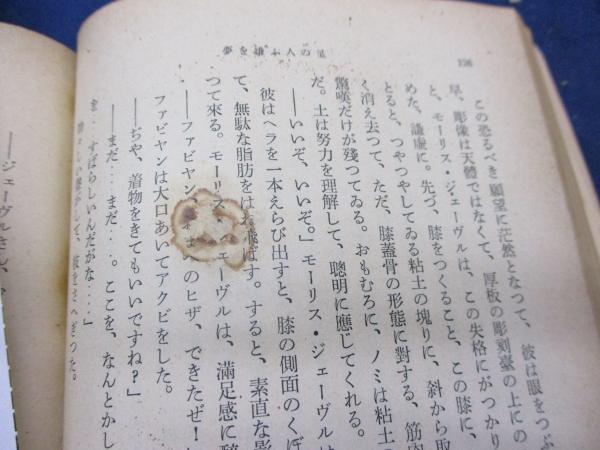 126
夢を嫌ふ人の星
この恐るべき願望に茫然となつて、彼は眼をつぶ
早、彫像は天體ではなくて、厚板の彫刻臺の上にの
と、モーリス・ジェーヴルは、この失格にがつかり
めた、謙虚に。先づ、膝をつくること、この膝に、
とると、つやつやしてゐる粘土の塊りに、斜から取
く消え去つて、ただ、膝蓋骨の形態に對する、筋肉
驚嘆だけが殘つてゐる。おもむろに、ノミは粘土の
だ。土は努力を理解して、聰明に應じてくれる。
――いいぞ、いいぞ。」モーリス・ジェーヴルは
彼はヘラを一本えらび出すと、膝の側面のくぼ
て、無駄な脂肪をは飛ばす。すると、素直な影
つて來る。モーリス・ジェーヴルは、滿足感に醉
――ファビヤン、のヒザ、できたぜ!
ファビヤンは大口あいてアクビをした。
――ぢや、着物をきてもいいですね?」
――まだ‥‥まだ‥‥。ここを、なんとかし
を‥‥すばらしいんだがな‥‥」
しい聲がして、彼をさへぎつた。
――ジェーヴルさん、